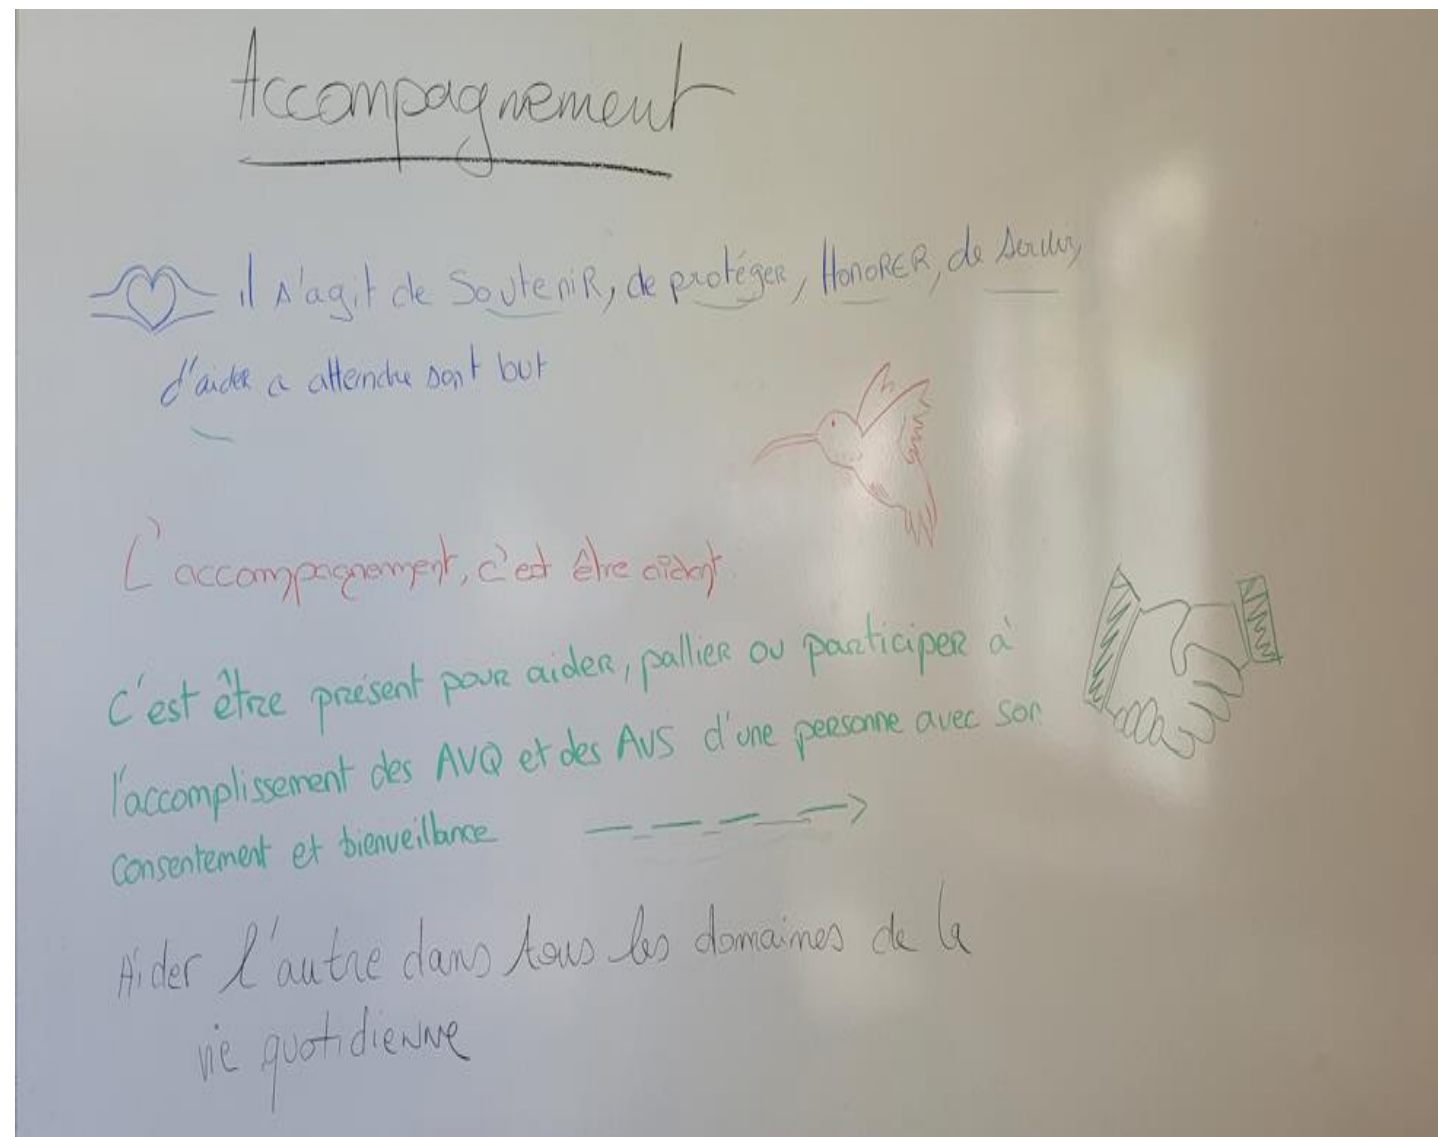 Accompagnement
il s'agit de Soutenir, de protéger, HONORER, de servir,
d'aider a atteindre sont but
L'accompagnement, c'est être aidant
C'est être présent pour aider, pallier ou participer à
l'accomplissement des AVQ et des AVS d'une personne avec son
consentement et bienveillance
Aider l'autre dans tous les domaines de la
vie quotidienne